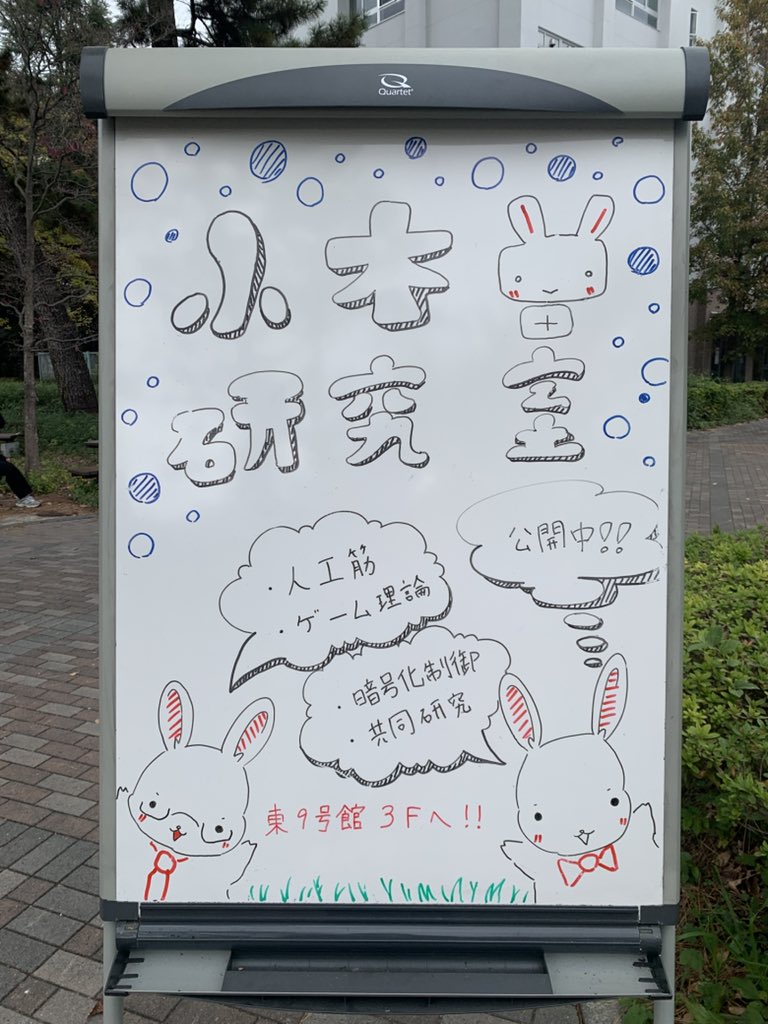 Quartet
小木曽
研究室
公開中!!
・人工筋
・ゲーム理論
・暗号化制御
・共同研究
東9号館 3Fへ!!